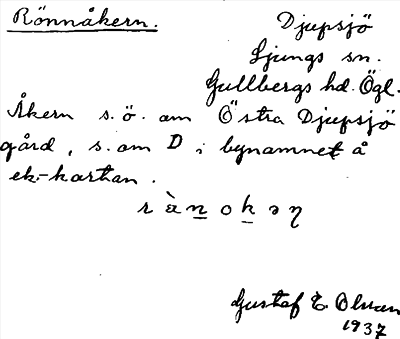 Rönnåkern. Djupsjö
Ljungs sn.
Gullbergs hd. Ögl.
Åkern s.ö. om Östra Djupsjö
gård, s. om D i bynamnet å
ek.-kartan.
r ὰ n o k ə ŋ
Gustaf E. Olsson
1937